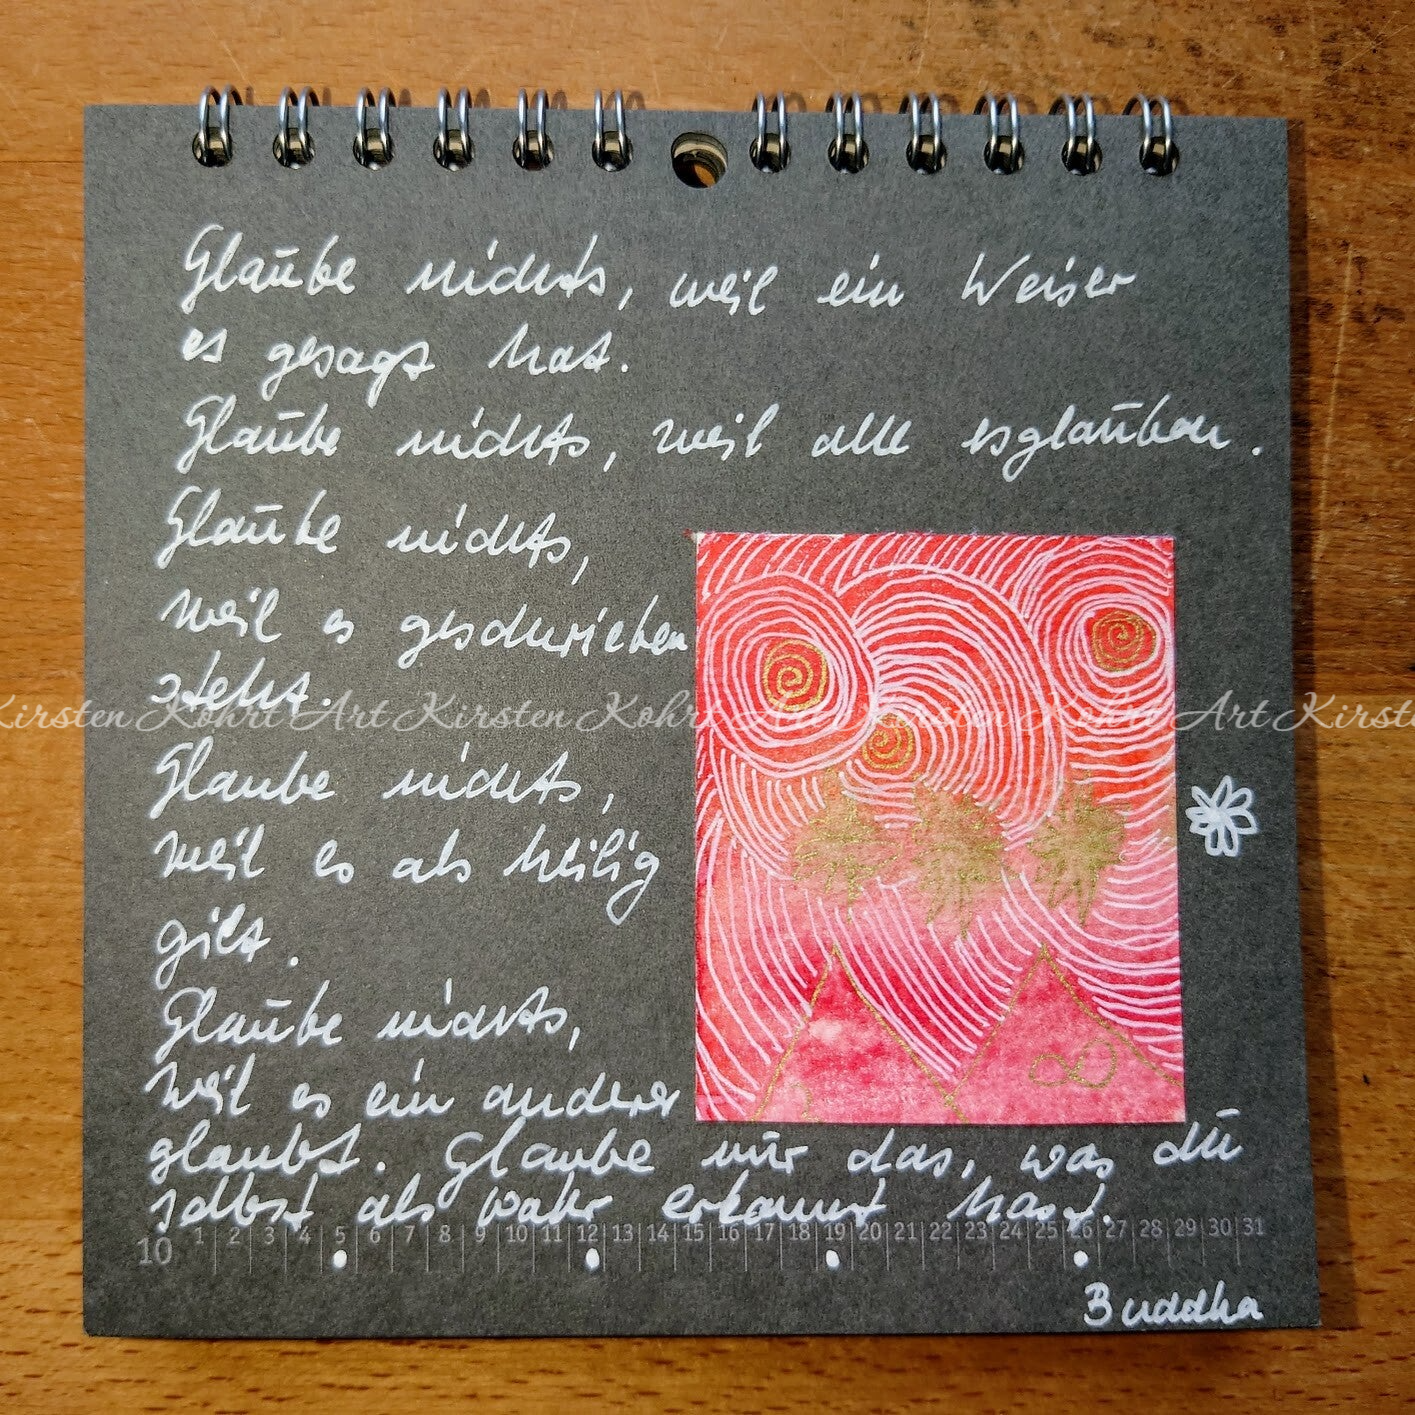 Glaube nichts, weil ein Weiser
es gesagt hat.
Glaube nichts, weil alle es glauben.
Glaube nichts,
weil es geschrieben
steht.
Kirsten Kohrt Art Kirsten Kohrt Art Kirsten Kohrt Art Kirsten
Glaube nichts,
weil es als heilig
gilt.
Glaube nichts,
weil es ein anderer
glaubt. Glaube nur das, was du
selbst als wahr erkannt hast.
10 1 2 3 4 5 6 7 8 9 10 11 12 13 14 15 16 17 18 19 20 21 22 23 24 25 26 27 28 29 30 31
Buddha